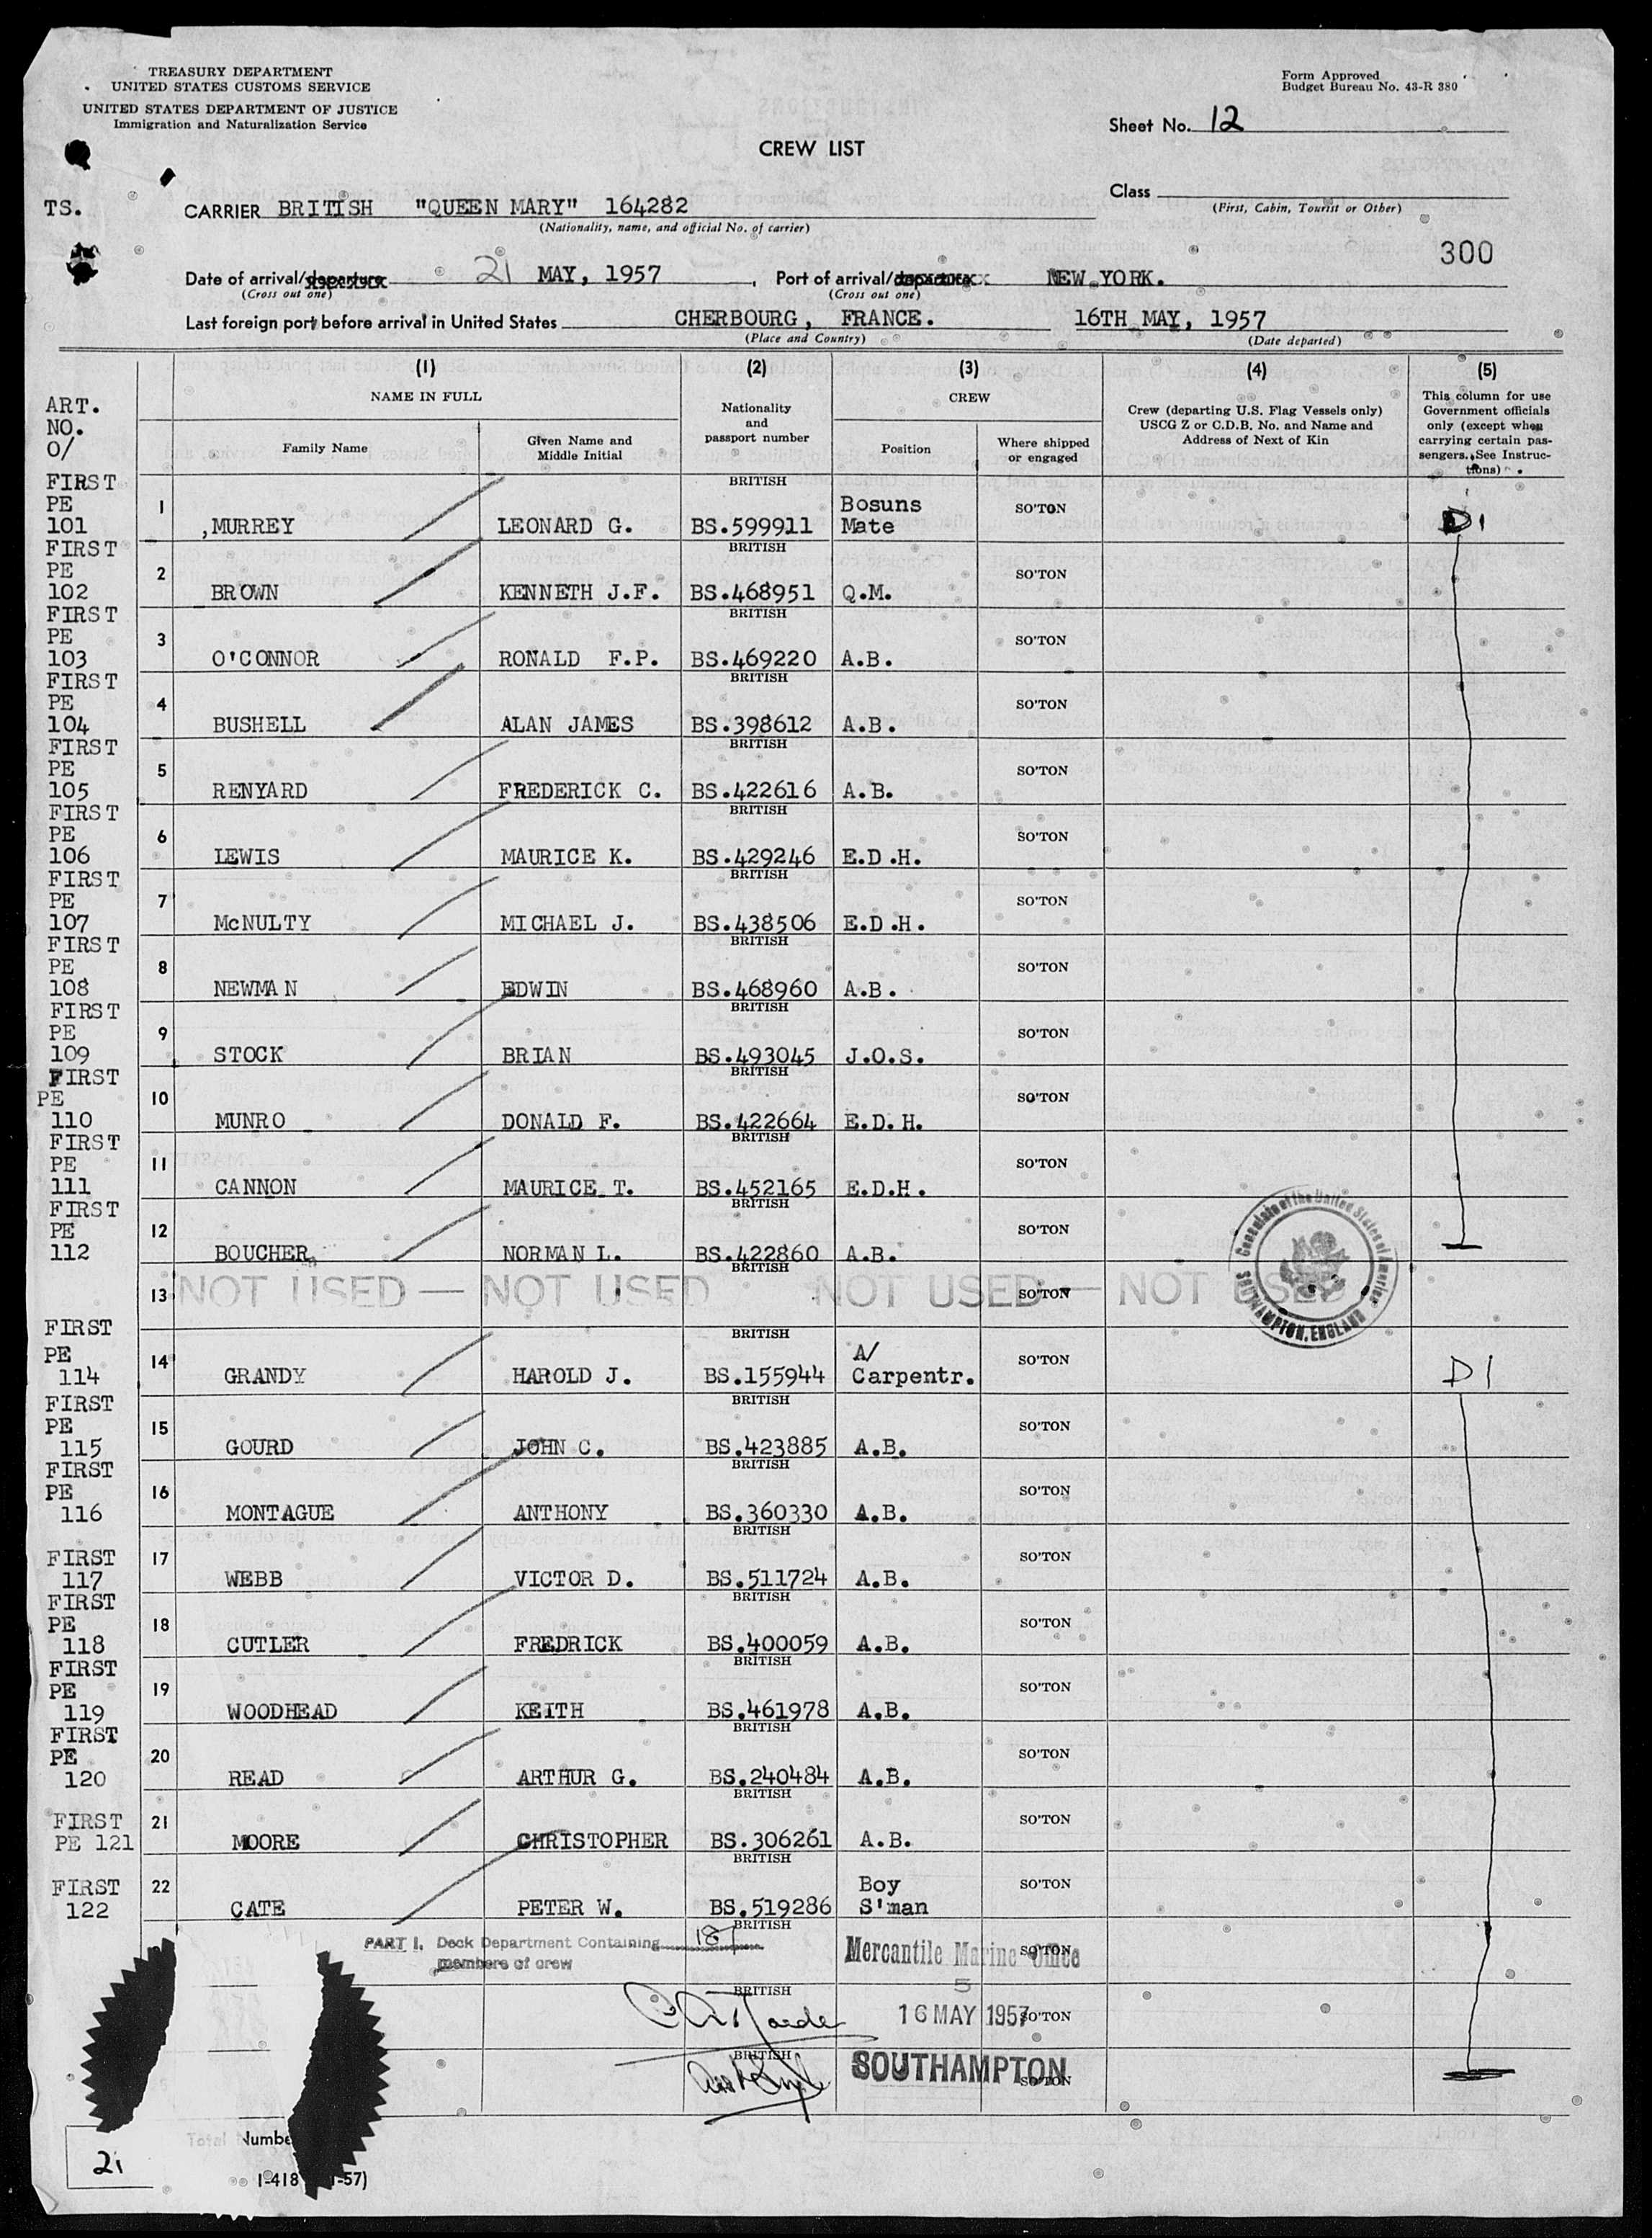 TREASURY DEPARTMENT
UNITED STATES CUSTOMS SERVICE
UNITED STATES DEPARTMENT OF JUSTICE
Immigration and Naturalization Service
Form Approved
Budget Bureau No. 43-R 380
Sheet No. 12
CREW LIST
Class
(First, Cabin, Tourist or Other)
TS.
CARRIER BRITISH "QUEEN MARY" 164282
(Nationality, name, and official No. of carrier)
300
Date of arrival/departure 21 MAY, 1957, Port of arrival/departure NEW YORK.
(Cross out one) (Cross out one)
Last foreign port before arrival in United States CHERBOURG, FRANCE. 16TH MAY, 1957
(Place and Country) (Date departed)
(1) (2) (3) (4) (5)
ART. NO. O/
NAME IN FULL
Family Name
Given Name and Middle Initial
Nationality and passport number
CREW
Position
Where shipped or engaged
Crew (departing U.S. Flag Vessels only) USCG Z or C.D.B. No. and Name and Address of Next of Kin
This column for use Government officials only (except when carrying certain passengers. See Instructions)
FIRST PE 101 1 ,MURREY LEONARD G. BRITISH BS.599911 Bosuns Mate SO'TON D1
FIRST PE 102 2 BROWN KENNETH J.F. BRITISH BS.468951 Q.M. SO'TON
FIRST PE 103 3 O'CONNOR RONALD F.P. BRITISH BS.469220 A.B. SO'TON
FIRST PE 104 4 BUSHELL ALAN JAMES BRITISH BS.398612 A.B. SO'TON
FIRST PE 105 5 RENYARD FREDERICK C. BRITISH BS.422616 A.B. SO'TON
FIRST PE 106 6 LEWIS MAURICE K. BRITISH BS.429246 E.D.H. SO'TON
FIRST PE 107 7 McNULTY MICHAEL J. BRITISH BS.438506 E.D.H. SO'TON
FIRST PE 108 8 NEWMAN EDWIN BRITISH BS.468960 A.B. SO'TON
FIRST PE 109 9 STOCK BRIAN BRITISH BS.493045 J.O.S. SO'TON
FIRST PE 110 10 MUNRO DONALD F. BRITISH BS.422664 E.D.H. SO'TON
FIRST PE 111 11 CANNON MAURICE T. BRITISH BS.452165 E.D.H. SO'TON
FIRST PE 112 12 BOUCHER NORMAN L. BRITISH BS.422860 A.B. SO'TON
13 NOT USED — NOT USED NOT USED — NOT USED BRITISH SO'TON
Consulate of the United States of America
SOUTHAMPTON, ENGLAND
FIRST PE 114 14 GRANDY HAROLD J. BRITISH BS.155944 A/ Carpentr. SO'TON D1
FIRST PE 115 15 GOURD JOHN C. BRITISH BS.423885 A.B. SO'TON
FIRST PE 116 16 MONTAGUE ANTHONY BRITISH BS.360330 A.B. SO'TON
FIRST 117 17 WEBB VICTOR D. BRITISH BS.511724 A.B. SO'TON
FIRST PE 118 18 CUTLER FREDRICK BRITISH BS.400059 A.B. SO'TON
FIRST PE 119 19 WOODHEAD KEITH BRITISH BS.461978 A.B. SO'TON
FIRST PE 120 20 READ ARTHUR G. BRITISH BS.240484 A.B. SO'TON
FIRST PE 121 21 MOORE CHRISTOPHER BRITISH BS.306261 A.B. SO'TON
FIRST 122 22 CATE PETER W. BRITISH BS.519286 Boy S'man SO'TON
PART I. Deck Department Containing 187 BRITISH
members of crew
Mercantile Marine Office SO'TON
5
BRITISH 16 MAY 1957 SO'TON
BRITISH SOUTHAMPTON SO'TON
Total Numbe
21
I-418 -57)